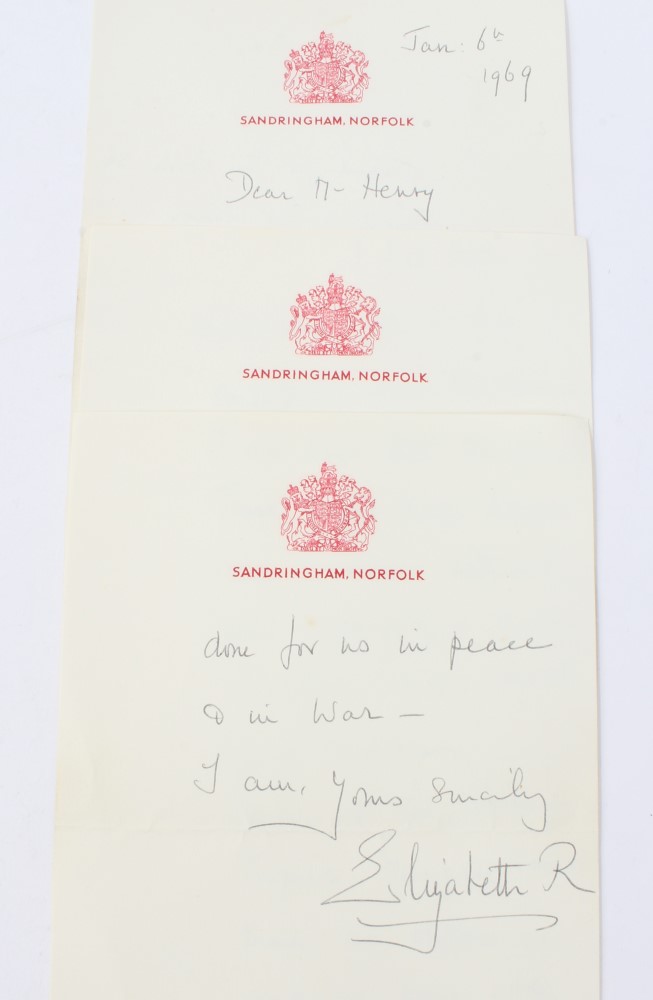 Jan: 6th
1969
SANDRINGHAM, NORFOLK
Dear Mr Henry
SANDRINGHAM, NORFOLK
SANDRINGHAM, NORFOLK
done for us in peace
& in War —
I am, Yours Sincerely
Elizabeth R